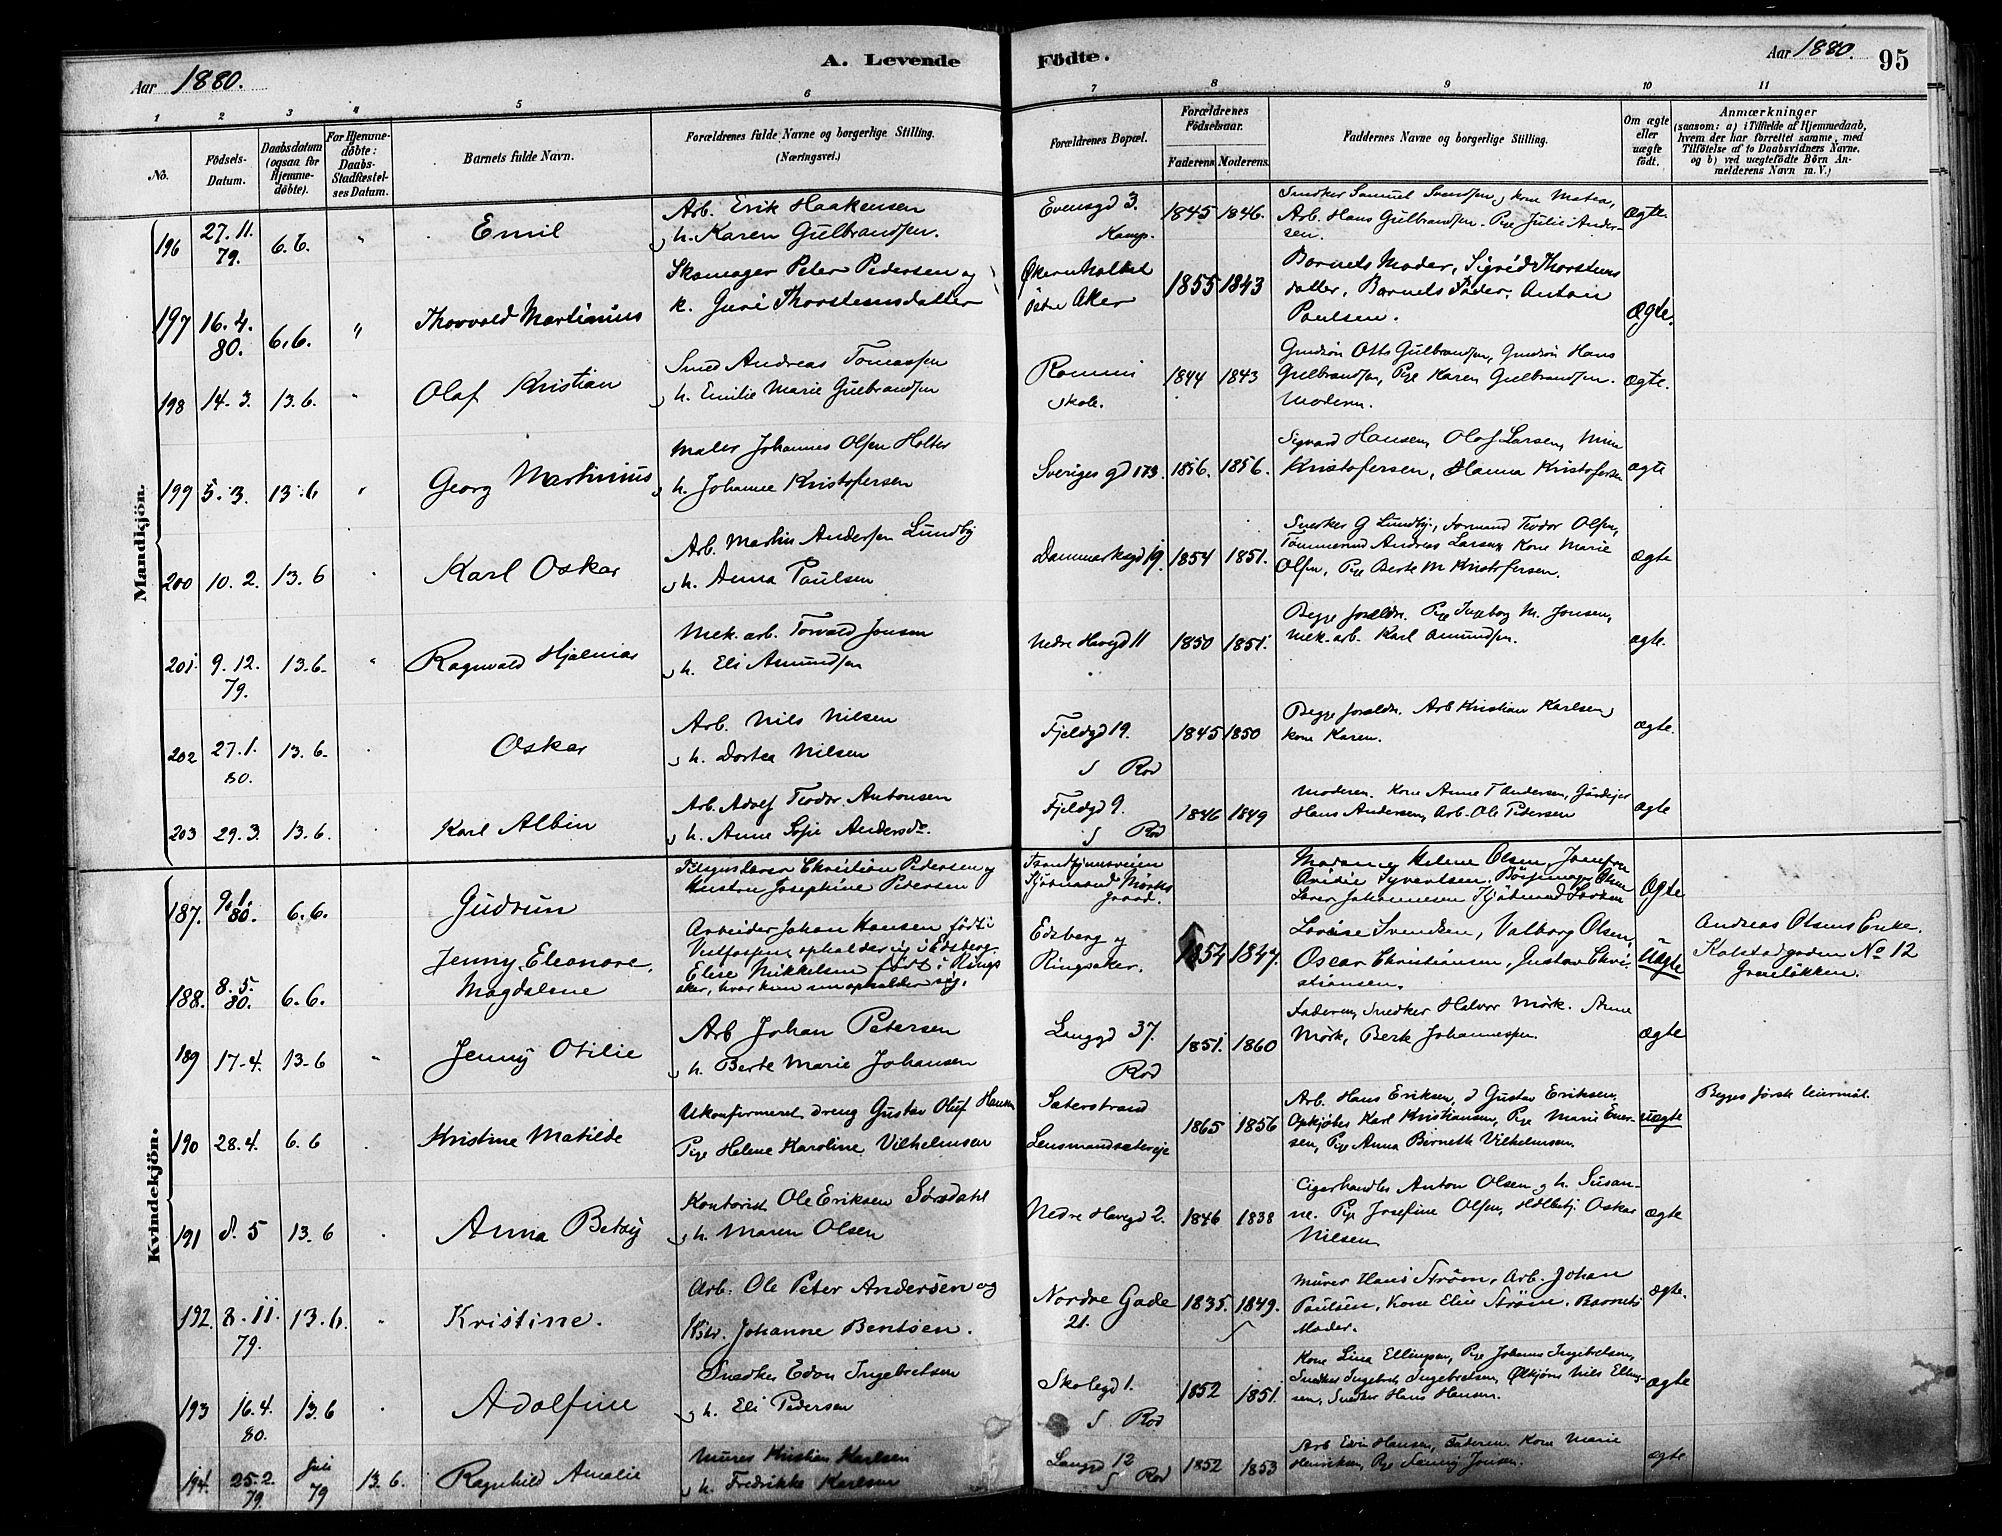 Aar 1880.
A. Levende
Födte.
Aar 1880.
95
1 2 3 4 5 6 7 8 9 10 11
No.
Födsels-
Datum.
Daabsdatum
(ogsaa for
Hjemme-
döbte).
For Hjemme-
döbte:
Daabs-
Stadfæstel-
ses Datum.
Barnets fulde Navn.
Forældrenes fulde Navne og borgerlige Stilling.
(Næringsvei.)
Forældrenes Bopæl.
Forældrenes
Födselsaar.
Faderens. Moderens.
Faddernes Navne og borgerlige Stilling.
Om ægte
eller
uægte
födt.
Anmærkninger
(saasom: a) i Tilfælde af Hjemmedaab,
hvem der har forrettet samme, med
Tilföielse af to Daabsvidners Navne,
og b) ved uægtefödte Börn An-
melderens Navn m. V.)
Mandkjön.
196
27. 11.
79.
6.6.
"
Emil
Arb. Erik Haakensen
h. Karen Gulbrandsen.
Evensgd 3.
Kamp.
1845
1846.
Snedker Samuel Svendsen, kone Matea,
Arb. Hans Gulbrandsen. Pige Julie Ander-
sen.
ægte
197
16. 4.
80.
6.6.
"
Thorvald Martinius
Skomager Peter Pedersen og
k. Guri Thorstensdatter
Østre Aker
1855
1843
Barnets Moder, Sigrid Thorstens
datter, Barnets Fader, Anton
Paulsen.
Ægte.
198
14. 3.
13.6.
"
Olaf Kristian
Smed Andreas Tomassen
h. Emilie Marie Gulbrandsen
skole.
1844
1843
Otto Gulbrandsen, Hans
Gulbrandsen, Pige Karen Gulbrandsen.
Moderen.
ægte.
199
5. 3.
13.6
"
Georg Martinius
Maler Johannes Olsen Holter
h. Johanne Kristofersen
Sverigesgd 173
1856.
1856.
Sigvard Hansen, Olaf Larsen,
Kristofersen, Hanna Kristofersen
ægte
200
10. 2.
13.6
Karl Oskar
Arb. Martin Andersen Lundby
h. Anna Paulsen
Danmarksgd 19.
1854
1851.
Snedker G Lundby, Formand Teodor Olsen,
Tømmermd Andreas Larsen, Kone Marie
Olsen, Pige Berte M Kristofersen.
ægte
201.
9. 12.
79.
13.6.
"
Ragnvald Hjalmar
Mek. arb. Torvald Jonsen
h. Eli Amundsen
Nedre Havegd 11
1850
1851.
Begge forældre. Pige Ingeborg M. Jonsen,
Mek. arb. Karl Amundsen.
ægte.
202
27. 1.
80.
13.6.
Oskar
Arb. Nils Nilsen
h. Dortea Nilsen
Fjeldgd 19.
S Rod
1845
1850
Begge forældre. Arb Kristian Karlsen,
kone Karen.
ægte.
203
29. 3.
13.6.
Karl Albin
Arb. Adolf Teodor Antonsen
h. Anne Sofie Andersdr.
Fjeldgd 9.
S Rod
1846
1849
Moderen. Kone Anne T Andersen, Gårdejer
Hans Andersen, Arb. Ole Pedersen
ægte
Kvindekjön.
187.
9. 1.
80.
6.6.
Gudrun
Christian Pedersen og
Hustru Josephine Pedersen
1854
1847.
Madam Helene Olsen, Jomfru
Syvertsen.
Ægte
188.
8. 5.
80.
6.6.
Jenny, Eleonore,
Magdalene
Arbeider Johan Hansen født i
opholder sig i Edsberg
Elise Mikkelsen født i Rings
aker, hvor hun nu opholder sig.
Edsberg og
Ringsaker.
Lovise Svendsen, Valborg Olsen,
Oscar Christiansen, Gustav Chri-
stiansen.
Uægte
Andreas Olsens Enke.
No 12
Grønløkken.
189
17-4.
13-6
"
Jenny Otilie
Arb Johan Petersen
h. Berte Marie Johansen
Langgd 37.
Rod
1851.
1860
Faderen, Snedker Halvor Mørk. Anne
Mørk, Berte Johannessen.
ægte
190
28. 4.
6.6
Kristine Matilde
Ukonfirmeret dreng Gustav Oluf Hansen
Pige Helene Karoline Vilhelmsen
Sæterstrand
1865
1856
Arb. Hans Eriksen, d Gustav Eriksen,
Karl Kristiansen, Pige Marie Ever-
sen, Pige Anna Vilhelmsen.
uægte
Begges første leiermål.
191
8. 5
13-6
Anna Betsy
Kontorist Ole Eriksen Sørsdahl
h. Maren Olsen
Nedre Havegd 2.
1846
1838
Cigarhandler Anton Olsen, h. Susan-
ne. Pige Josefine Olsen, Oskar
Nilsen
ægte
192.
8. 11.
79.
13.6.
"
Kristine.
Arb. Ole Peter Andersen og
Hstr. Johanne Bentsen.
Nordre Gade
21.
1835.
1849.
Murer Hans Strøm, Arb. Johan
Paulsen, Kone Elin Strøm. Barnets
Moder.
ægte.
193
16. 4.
80.
13.6
Adolfine
Snedker Edon Ingebretsen
h. Eli Pedersen
Skolegd 1.
S Rod
1852
1851.
Kone Lina Ellingsen, Pige Johanne Ingebretsen,
Snedker Ingebret Ingebretsen, Nils Elling-
sen, Snedker Hans Hansen.
ægte
194.
25. 2.
79.
Juli
79
13.6.
Ragnhild Amalie
Murer Kristian Karlsen
h. Fredrikke Karlsen
Langgd 12
S Rod
1852
1853
Arb Even Hansen, Faderen. Kone Marie
Henriksen, Pige Fanny Jonsen.
ægte